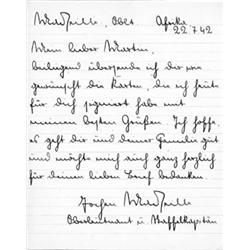 Marseille, Oblt. Afrika
22.7.42
Mein lieber Martin,
beiliegend übersende ich dir wie
gewünscht die Karten, die ich heute
für dich signiert habe mit
meinen besten Grüßen. Ich hoffe,
es geht dir und deiner Familie gut
und möchte mich auch ganz herzlich
für deinen lieben Brief bedanken.
Jochen Marseille
Oberleutnant u. Staffelkapitän